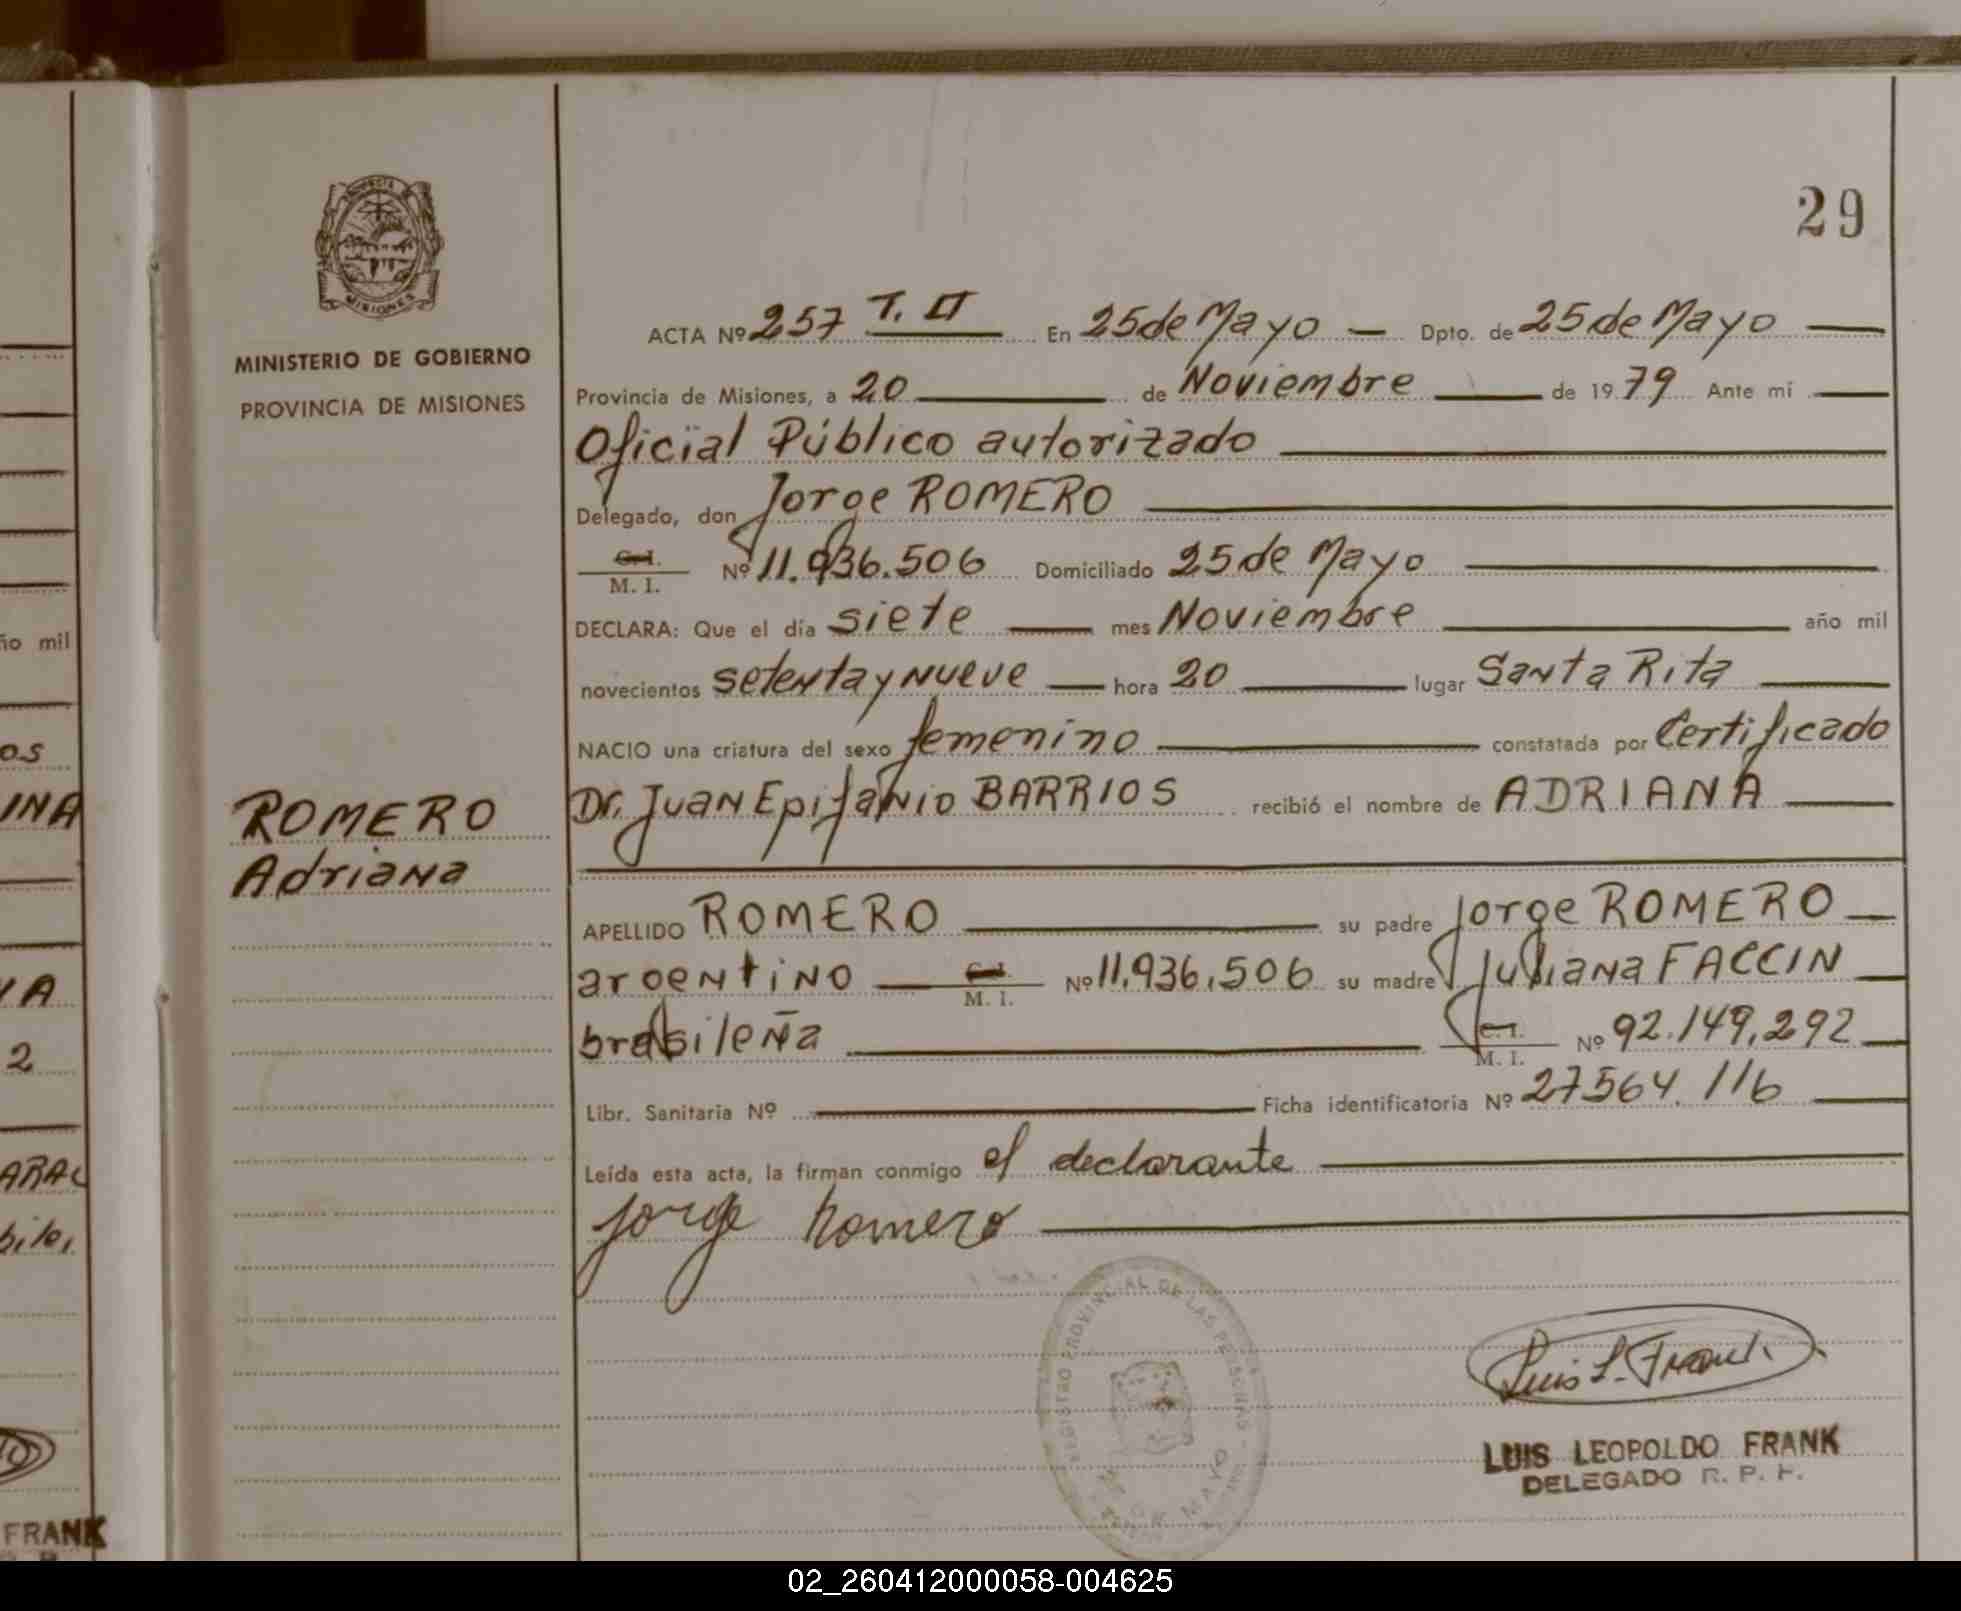 29
MINISTERIO DE GOBIERNO
PROVINCIA DE MISIONES
ROMERO
Adriana
ACTA Nº 257 T. II En 25 de Mayo Dpto. de 25 de Mayo
Provincia de Misiones, a 20 de Noviembre de 1979 Ante mí
Oficial Público autorizado
Delegado, don Jorge ROMERO
C. I.
M. I. Nº 11.936.506 Domiciliado 25 de Mayo
DECLARA: Que el día siete mes Noviembre año mil
novecientos setenta y nueve hora 20 lugar Santa Rita
NACIO una criatura del sexo femenino constatada por Certificado
Dr. Juan Epifanio BARRIOS recibió el nombre de ADRIANA
APELLIDO ROMERO su padre Jorge ROMERO
argentino C. I. M. I. Nº 11.936.506 su madre Juliana FACCIN
brasileña C. I. M. I. Nº 92.149.292
Libr. Sanitaria Nº Ficha identificatoria Nº 27564.116
Leída esta acta, la firman conmigo el declarante
Jorge Romero
REGISTRO PROVINCIAL DE LAS PERSONAS
25 DE MAYO
Luis L. Frank
LUIS LEOPOLDO FRANK
DELEGADO R. P. P.
ño mil
os
INA
2
FRANK
02_260412000058-004625